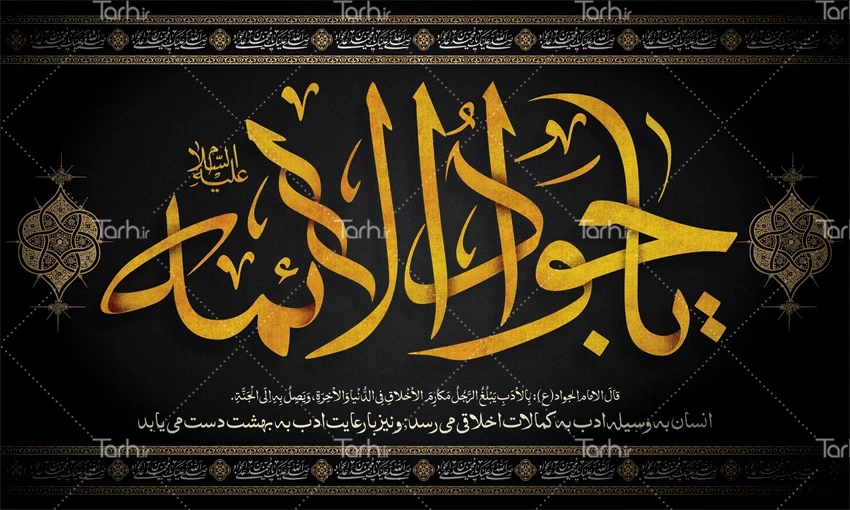 یا جواد الائمه
علیه السلام
قالَ الامام الجواد(ع): بِالأدَبِ يَبْلُغُ الرَّجُلُ مَكارِمَ الأخْلاقِ فِي الدُّنْيا وَالآخِرَةِ، وَيَصِلُ بِهِ اِلَى الْجَنَّةِ.
انسان به وسیله ادب به کمالات اخلاقی می رسد؛ و نیز با رعایت ادب به بهشت دست می یابد
Tarh.ir